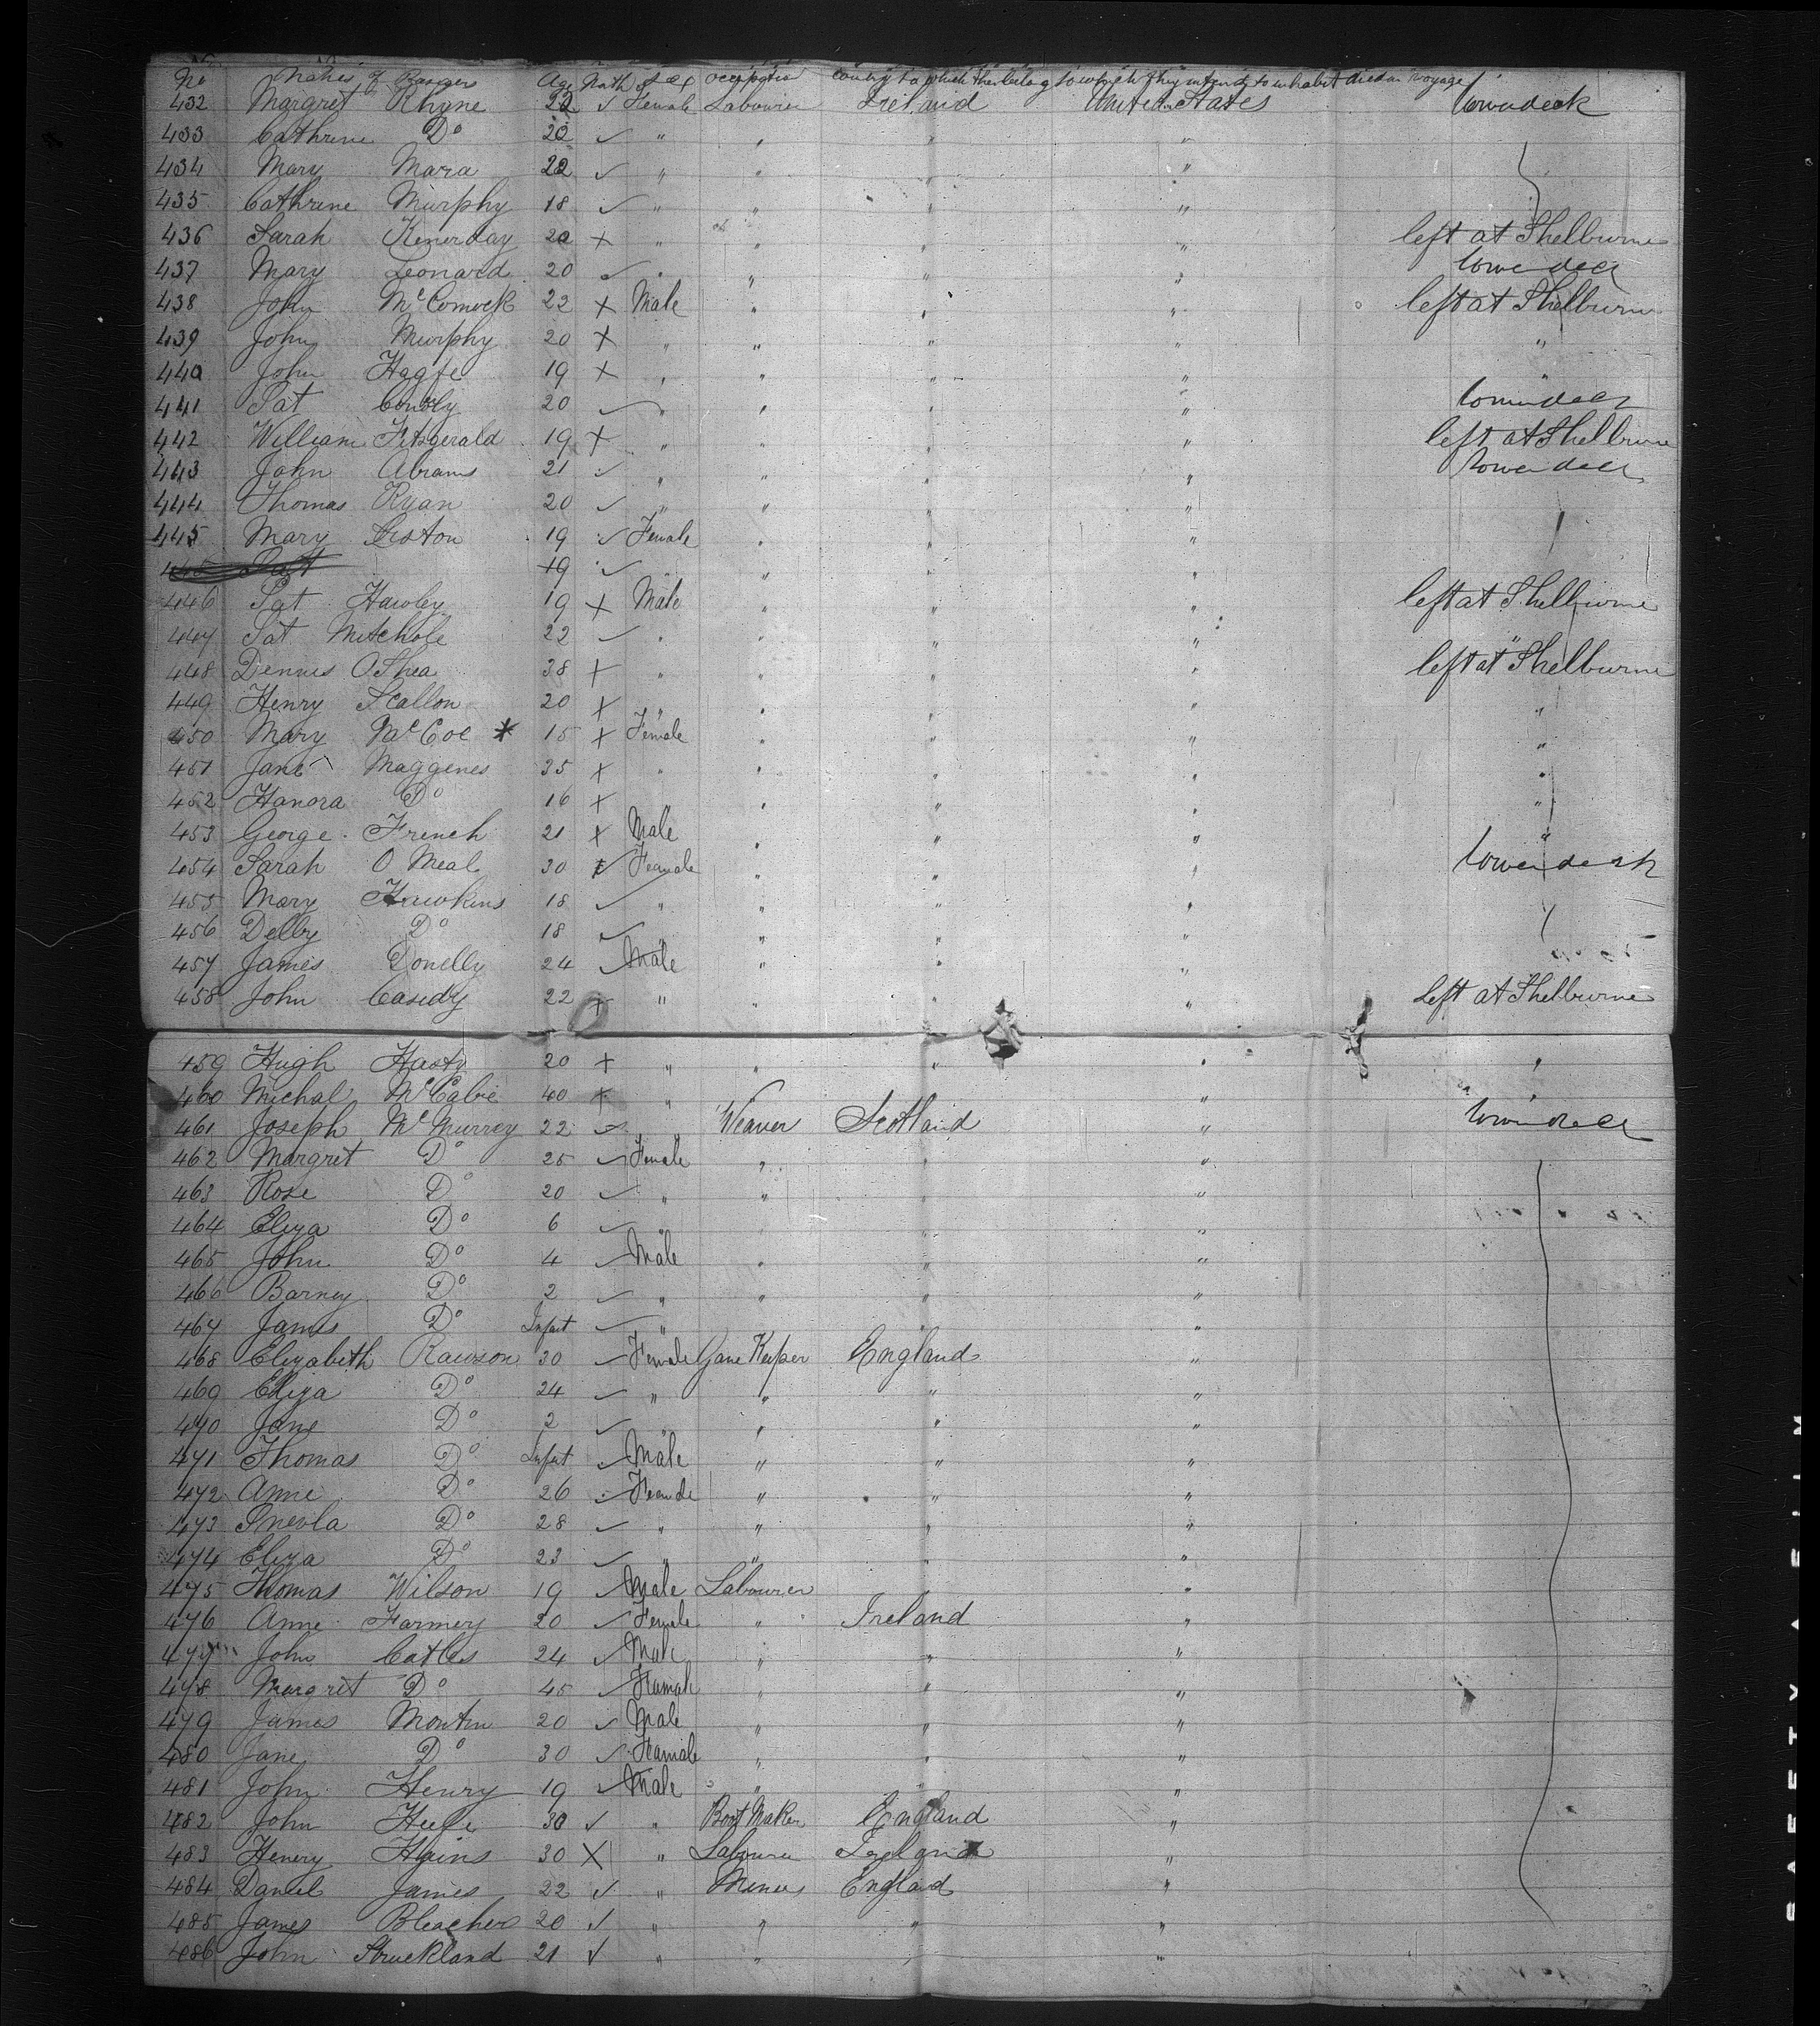 No Names of Pasngers Age Mnth Sex occupation country to which they belong to which they intend to inhabit died on voyage
432 Margret Rhyne 22 ✓ Female Labourer Ireland United States lowerdeck
433 Cathrine Do 20 ✓ " " " "
434 Mary Mara 22 ✓ " " " "
435 Cathrine Murphy 18 ✓ " " " "
436 Sarah Kenerday 20 x " " " " left at Shelburne
437 Mary Leonard 20 ✓ " " " " lowerdeck
438 John McComock 22 x Male " " " left at Shelburne
439 John Murphy 20 x " " " " "
440 John Hagfe 19 x " " " " "
441 Pat Conoly 20 ✓ " " " " lowerdeck
442 William Fitsgerald 19 x " " " " left at Shelburne
443 John Abrams 21 ✓ " " " " lowerdeck
444 Thomas Ryan 20 ✓ " " " "
445 Mary Liston 19 ✓ Female " " "
19 ✓ " "
446 Pat Hawley 19 x Male " " " left at Shelburne
447 Pat Mitchole 22 ✓ " " " " "
448 Dennis OShea 38 x " " " " left at Shelburne
449 Henry Scallon 20 x " " " " "
450 Mary McCoe * 15 x Female " " " "
451 Jane Maggenes 35 x " " " " "
452 Hanora Do 16 x " " " "
453 George French 21 x Male " " " "
454 Sarah O Meal 30 ✓ Female " " " lowerdeck
455 Mary Hawkins 18 ✓ " " " "
456 Delby Do 18 ✓ " " " "
457 James Donelly 24 ✓ Male " " "
458 John Casidy 22 x " " " " left at Shelburne
459 Hugh Hasty 20 x " " " " "
460 Michal McCabe 40 x " "
461 Joseph McMurrey 22 ✓ " Weaver Scotland " lowerdeck
462 Margret Do 25 ✓ Female " " "
463 Rose Do 20 ✓ " " " "
464 Eliza Do 6 ✓ " "
465 John Do 4 ✓ Male " " "
466 Barney Do 2 ✓ " " " "
467 James Do Infant ✓ " "
468 Elizabeth Rawson 30 ✓ Female Game Keeper England "
469 Eliza Do 24 ✓ " " " "
470 Jane Do 2 ✓ " " "
471 Thomas Do Infant ✓ Male " " "
472 Anne Do 26 ✓ Female " " "
473 Do 28 ✓ " " " "
474 Eliza Do 23 ✓ " " " "
475 Thomas Wilson 19 ✓ Male Labourer "
476 Anne Farmery 20 ✓ Female " Ireland "
477 John Catles 24 ✓ Male " " "
478 Margret Do 45 ✓ Female " " "
479 James Montin 20 ✓ Male " " "
480 Jane Do 30 ✓ Female " " "
481 John Henry 19 ✓ Male " "
482 John 30 ✓ " Boot Maker England "
483 Henery Hains 30 X " Labourer "
484 Daniel James 22 ✓ " Miner England "
485 James Bleachers 20 ✓ " " " "
486 John Struckland 21 ✓ " " " "
SAFETY FILM